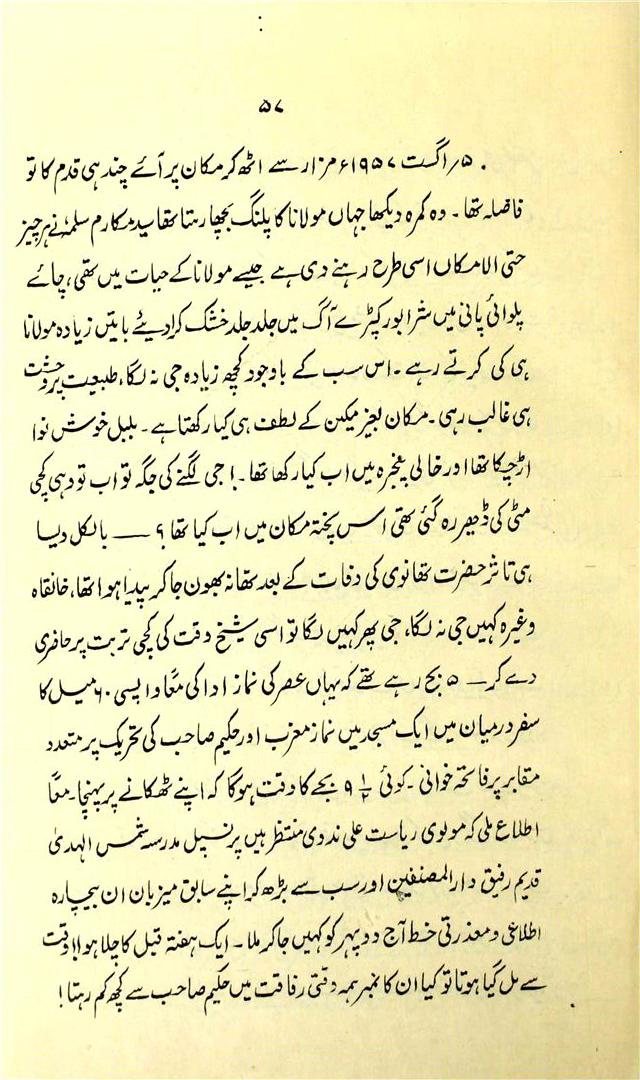 ۵۷
۵؍اگست ۱۹۵۷ء مزار سے اٹھ کر مکان پر آئے چند ہی قدم کا تو
فاصلہ تھا۔ وہ کمرہ دیکھا جہاں مولانا کا پلنگ بچھا رہتا تھا سید مکارم سلمہٗ نے ہر چیز
حتی الامکاں اسی طرح رہنے دی ہے جیسے مولانا کے حیات میں تھی، چائے
پلوائی پانی میں شرابور کپڑے آگ میں جلد جلد خشک کرا دیئے باتیں زیادہ مولانا
ہی کی کرتے رہے۔ اس سب کے باوجود کچھ زیادہ جی نہ لگا، طبیعت پر وحشت
ہی غالب رہی۔ مکان بغیر مکین کے لطف ہی کیا رکھتا ہے۔ بلبل خوش نوا
اڑ چکا تھا اور خالی پنجرہ میں اب کیا رکھا تھا۔! جی لگنے کی جگہ تو اب تو وہی کچی
مٹی کی ڈھیر رہ گئی تھی اس پختہ مکان میں اب کیا تھا ؟ — بالکل ویسا
ہی تاثر حضرت تھانوی کی وفات کے بعد تھانہ بھون جا کر پیدا ہوا تھا، خانقاہ
وغیرہ کہیں جی نہ لگا، جی پھر کہیں لگا تو اسی شیخ وقت کی کچی تربت پر حاضری
دے کر— ۵ بج رہے تھے کہ یہاں عصر کی نماز ادا کی معًا واپسی ۶۰ میل کا
سفر درمیان میں ایک مسجد میں نماز مغرب اور حکیم صاحب کی تحریک پر متعدد
مقابر پر فاتحہ خوانی۔ کوئی ۹ ½ بجے کا وقت ہوگا کہ اپنے ٹھکانے پر پہنچا۔ معًا
اطلاع ملی کہ مولوی ریاست علی ندوی منتظر ہیں پرنسپل مدرسہ شمس الہدیٰ
قدیم رفیق دارالمصنفین اور سب سے بڑھ کر اپنے سابق میزبان ان بیچارہ
اطلاعی و معذرتی خط آج دوپہر کو کہیں جا کر ملا۔ ایک ہفتہ قبل کا چلا ہوا! وقت
سے مل گیا ہوتا تو کیا ان کا نمبر ہمہ وقتی رفاقت میں حکیم صاحب سے کچھ کم رہتا!